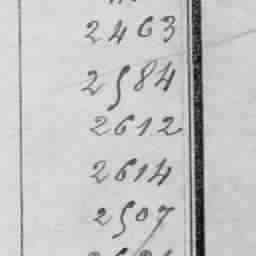 2463
2584
2612
2614
2507